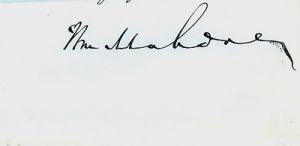 Wm Mahone